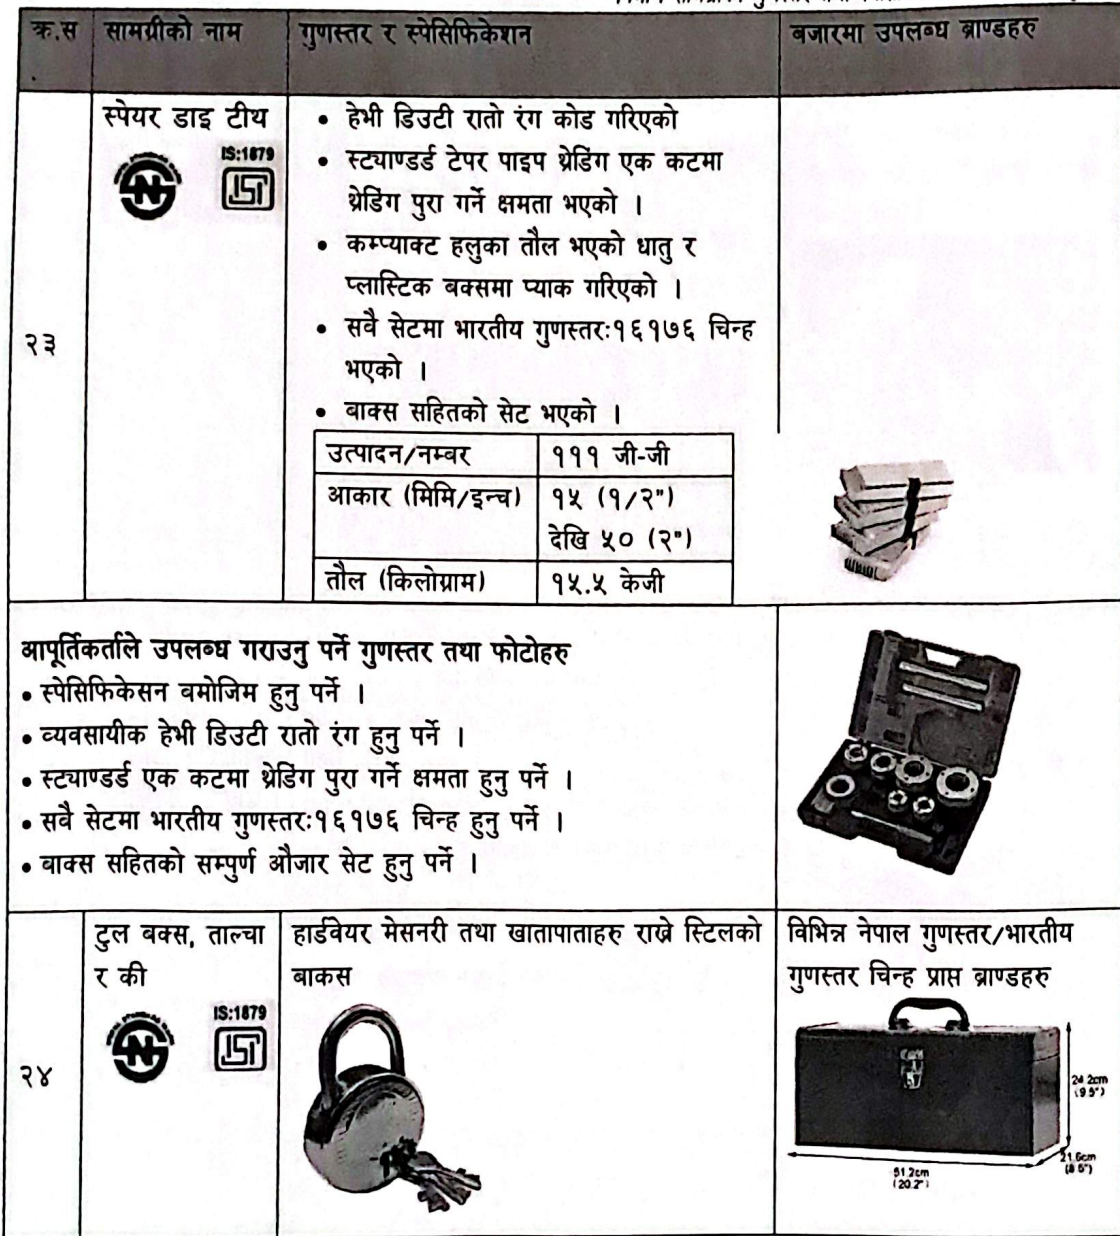 क्र.स सामग्रीको नाम गुणस्तर र स्पेसिफिकेशन बजारमा उपलब्ध ब्राण्डहरु
२३
स्पेयर डाइ टीथ
IS:1879
• हेभी डिउटी रातो रंग कोड गरिएको
• स्ट्याण्डर्ड टेपर पाइप थ्रेडिंग एक कटमा
थ्रेडिंग पुरा गर्ने क्षमता भएको ।
• कम्प्याक्ट हलुका तौल भएको धातु र
प्लास्टिक बक्समा प्याक गरिएको ।
• सवै सेटमा भारतीय गुणस्तरः१६१७६ चिन्ह
भएको ।
• बाक्स सहितको सेट भएको ।
उत्पादन/नम्वर १११ जी-जी
आकार (मिमि/इन्च) १५ (१/२")
देखि ५० (२")
तौल (किलोग्राम) १५.५ केजी
आपूर्तिकर्ताले उपलब्ध गराउनु पर्ने गुणस्तर तथा फोटोहरु
• स्पेसिफिकेसन वमोजिम हुनु पर्ने ।
• व्यवसायीक हेभी डिउटी रातो रंग हुनु पर्ने ।
• स्ट्याण्डर्ड एक कटमा थ्रेडिंग पुरा गर्ने क्षमता हुनु पर्ने ।
• सबै सेटमा भारतीय गुणस्तरः१६१७६ चिन्ह हुनु पर्ने ।
• बाक्स सहितको सम्पुर्ण औजार सेट हुनु पर्ने ।
२४
टुल बक्स, ताल्चा
र की
IS:1879
हार्डवेयर मेसनरी तथा खातापाताहरु राख्ने स्टिलको
बाकस
विभिन्न नेपाल गुणस्तर/भारतीय
गुणस्तर चिन्ह प्राप्त ब्राण्डहरु
24.2cm
(9.5")
21.6cm
(8.5")
51.2cm
(20.2")